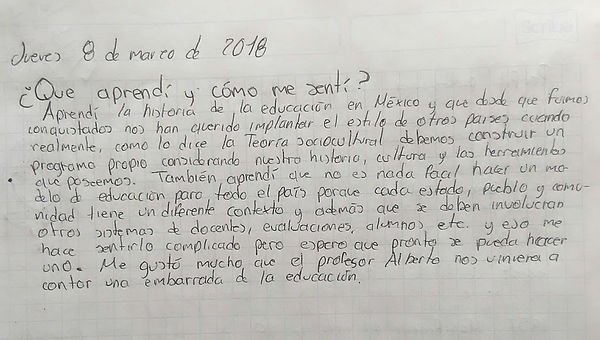 Scribe
Jueves 8 de marzo de 2018
¿Que aprendí y cómo me sentí?
Aprendí la historia de la educación en México y que desde que fuimos
conquistados nos han querido implantar el estilo de otros países cuando
realmente, como lo dice la Teoría sociocultural debemos construir un
programa propio considerando nuestra historia, cultura y las herramientas
que poseemos. También aprendí que no es nada facil hacer un mo-
delo de educación para todo el país porque cada estado, pueblo y comu-
nidad tiene un diferente contexto y además que se deben involucran
otros sistemas de docentes, evaluaciones, alumnos etc. y eso me
hace sentirlo complicado pero espero que pronto se pueda hacer
uno. Me gustó mucho que el profesor Alberto nos viniera a
contar una embarrada de la educación.